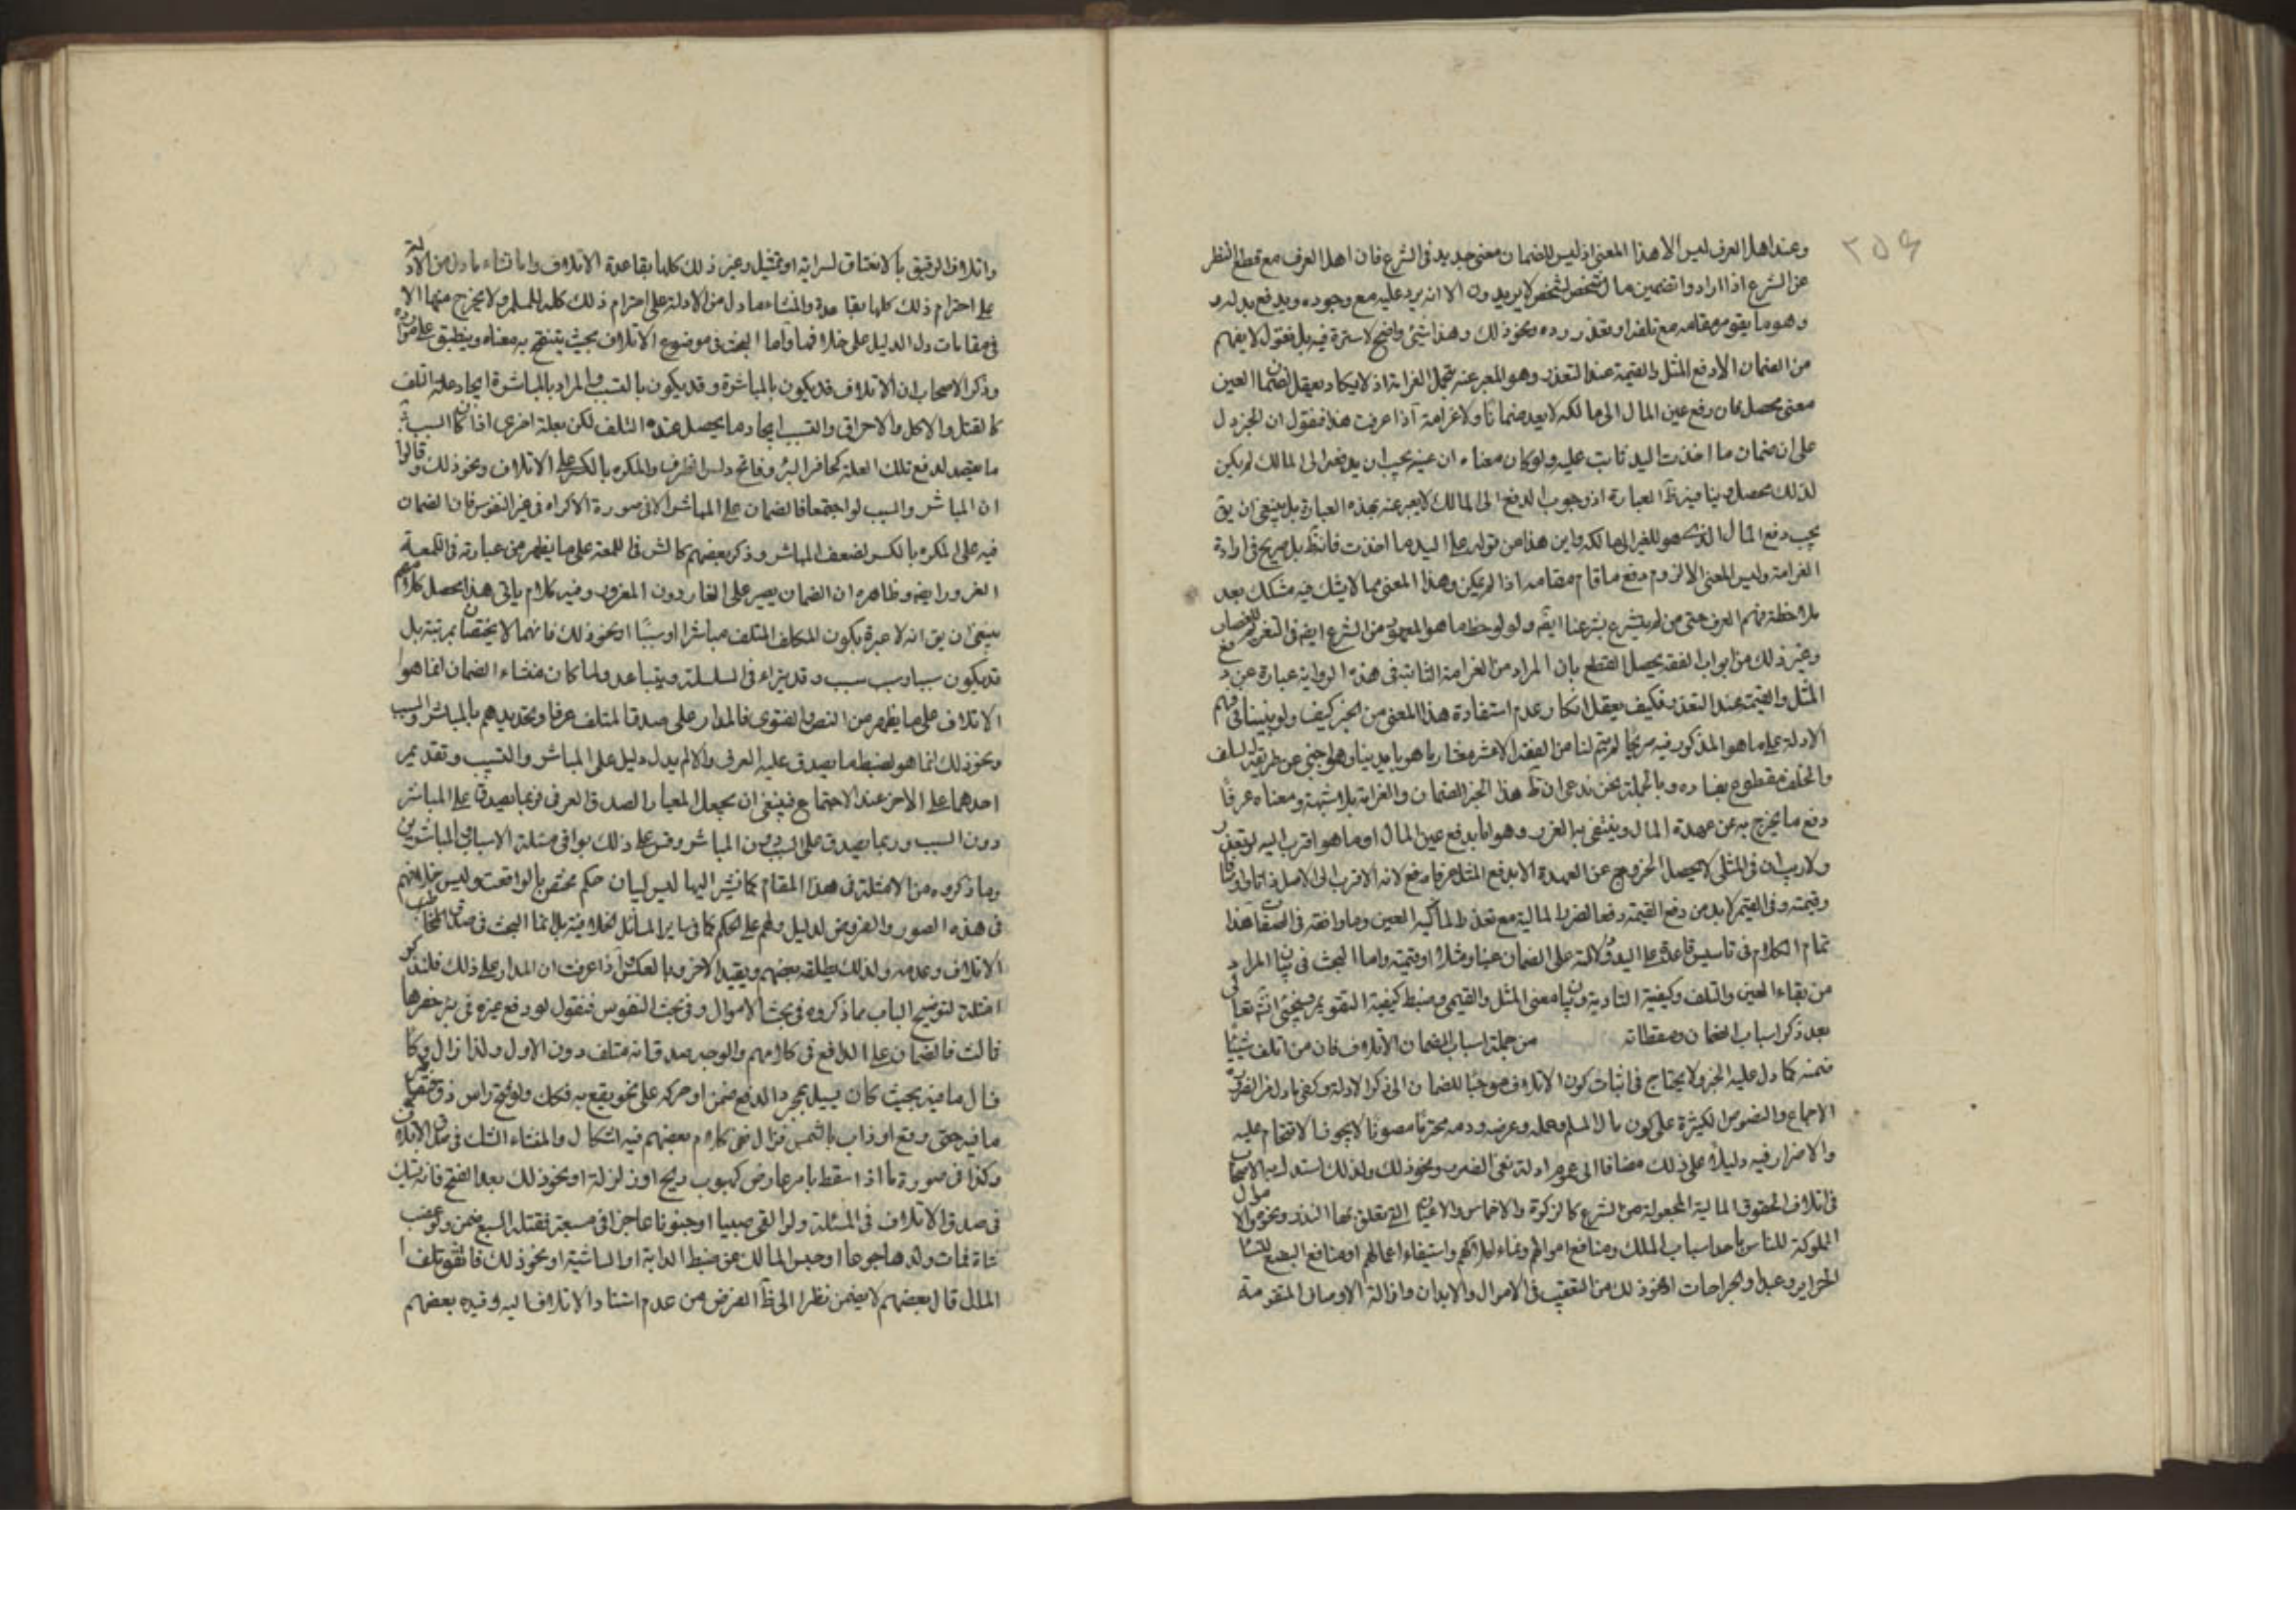 ٢٥٩
وعند اهل العرف ليس الا هذا المعنى اذ ليس للضمان معنى جديد فى الشرع فان اهل العرف مع قطع النظر
عن الشرع اذا ارادوا تضمين مال شخص لشخص لا يريدون الا انه يرد عليه مع وجوده ويدفع بدله
وهو ما يقوم مقامه مع تلفه او تعذر رده ونحو ذلك وهذا شئ واضح لا سترة فيه بل نقول لا يفهم
من الضمان الا دفع المثل والقيمة عند التعذر وهو المعبر عنه بتحمل الغرامة اذ لا يكاد يعقل لضمان العين
معنى محصل فان رفع عين المال الى مالكه لا يعد ضمانا ولا غرامة اذا عرفت هذا فنقول ان الخبر دل
على ان ضمان ما اخذت اليد ثابت عليه ولو كان معناه ان عينه يجب ان يدفع الى المالك لم يكن
لذلك محصل وينافيه ظ العبارة اذ وجوب الدفع الى المالك لا يعبر عنه بهذه العبارة بل ينبغى ان يق
يجب دفع المال الذى هو للغير الى مالكه واين هذا من قوله على اليد ما اخذت فانه ظ بل صريح فى ارادة
الغرامة وليس المعنى الا لزوم دفع ما قام مقامه اذا لم يمكن وهذا المعنى مما لا يشك فيه مشكك بعد
ملاحظة فهم العرف حتى من لم يتشرع بشرعنا ايضا ولو لوحظ ما هو المعهود من الشرع ايضا فى التغريم للغصاب
وغير ذلك من ابواب الفقه يحصل القطع بان المراد من الغرامة الثابتة فى هذه الرواية عبارة عن دفع
المثل والقيمة عند التعذر فكيف يعقل انكار عدم استفادة هذا المعنى من الخبر كيف ولو بنينا فى فهم
الادلة على ما هو المذكور فيه صريحا لم يتم لنا من الفقه الا عشر معشار ما هو بايدينا وهو اجنبى عن طريقة السلف
والخلف مقطوع بفساده وبالجملة نحن ندعى ان ظ هذا الخبر الضمان والغرامة بلا شبهة ومعناه عرفا
دفع ما يخرج به عن عهدة المال وينتفى به الضرر وهو اما بدفع عين المال او ما هو اقرب اليه لو تعذر
ولا ريب ان فى المثلى لا يحصل الخروج عن العهدة الا بدفع المثل عرفا لانه الاقرب الى الاصل ذاتا ووصفا
وقيمة وفى القيمى لا بد من دفع القيمة دفعا لضرر المالية مع تعذر العين وما وافقه فى الصفات هذا
تمام الكلام فى تاسيس قاعدة على اليد ودلالته على الضمان عينا ومثلا او قيمة واما البحث فى بيان المراد
من بقاء العين والتلف وكيفية التادية وبيان معنى المثل والقيمى وضبط كيفية التقويم فيجئ انشاء الله تعالى فى
بعد ذكر اسباب الضمان ومسقطاته من جملة اسباب الضمان الاتلاف فان من اتلف شيئا
ضمنه كما دل عليه الخبر ولا يحتاج فى اثبات كون الاتلاف موجبا للضمان الى ذكر الادلة وكفى ما دل من الضرورة
الاجماع والنصوص الكثيرة على كون مال المسلم وعمله وعرضه ودمه محترما مصونا لا يجوز الاقتحام عليه
والاضرار فيه دليلا على ذلك مضافا الى عموم ادلة نفى الضرر ونحو ذلك ولذلك استدل به الاصحاب
فى اتلاف الحقوق المالية المجعولة من الشرع كالزكوة والاخماس والاعيان التى تعلق بها النذر ونحوه والاموال
المملوكة للناس باحد اسباب الملك ومنافع اموالهم ونماء املاكهم واستيفاء اعمالهم او منافع البضع للنساء
الحراير وعبد والجراحات ونحو ذلك من التعقيب فى الاموال والابدان وازالة الاوصاف المتقومة
واتلاف الرقيق بالانعتاق لسراية او تمثيل وغير ذلك كلها بقاعدة الاتلاف وانما نشاء ما دل من الادلة
على احترام ذلك كلها بقاعدة والمنشاء ما دل من الادلة على احترام ذلك كله للمسلم ولا يخرج منها الا
فى مقامات دل الدليل على خلافها واما البحث فى موضوع الاتلاف بحيث يتنقح به معناه وينطبق على موارده
وذكر الاصحاب ان الاتلاف قد يكون بالمباشرة وقد يكون بالتسبب والمراد بالمباشرة ايجاد علة التلف
كالقتل والاكل والاحراق والتسبب ايجاد ما يحصل عنده التلف لكن بعلة اخرى اذا كان السبب
ما يقصد لدفع تلك العلة كحافر البئر وفاتح راس الظرف والمكره بالكسر على الاتلاف ونحو ذلك وقالوا
ان المباشر والسبب لو اجتمعا فالضمان على المباشر الا فى صورة الاكراه فى غير النفوس فان الضمان
فيه على المكره بالكسر لضعف المباشر وذكر بعضهم كالش فى اللمعة على ما يظهر من عبارته فى اللمعة
الغرور ايضا وظاهره ان الضمان يصير على الغار دون المغرور وفيه كلام ياتى هذا محصل كلامهم
ينبغى ان يق انه لا عبرة بكون المكلف المتلف مباشرا او سببا او نحو ذلك فانهما لا يختصان بمرتبة بل
قد يكون سببا وسبب سبب وقد يتراء فى السلسلة ويتباعد ولما كان منشاء الضمان انما هو
الاتلاف على ما يظهر من النص والفتوى فالمدار على صدق المتلف عرفا وتحديدهم بالمباشر والسبب
ونحو ذلك انما هو لضبط ما يصدق عليه العرف والا لم يدل دليل على المباشر والتسبيب وتقديم
احدهما على الاخر عند الاجتماع فينبغى ان يجعل المعيار الصدق العرفى فربما يصدق على المباشر
دون السبب وربما يصدق على السبب دون المباشر وقس على ذلك بواقى مسئلة الاسباب والمباشرين
وما ذكروه من الامثلة فى هذا المقام كما نشير اليها ليس لبيان حكم مختص بالواقعة وليس خلافهم
فى هذه الصور والفروض لدليل دلهم على الحكم كما فى ساير المسائل الخلافية بل انما البحث فى صدق
الاتلاف وعدمه ولذلك يطلقه بعضهم ويقيد الاخر وبالعكس اذا عرفت ان المدار على ذلك فلنذكر
امثلة لتوضيح الباب مما ذكروه فى بحث الاموال وفى بحث النفوس فنقول لو دفع غيره فى بئر حفرها
ثالث فالضمان على الدافع فى كلامهم والوجه صدق انه متلف دون الاول ولذا زال وكاء
فسال ما فيه بحيث كان يسيل بمجرد الدفع ضمن او حركه على نحو يقع به فكك ولو فتح راس زق
ما فيه حتى وقع او ذاب بالشمس فزال ففى كلام بعضهم فيه اشكال والمنشاء الشك فى صدق الاتلاف
وكذا فى صورة ما اذا سقط بامر عارض كهبوب ريح او زلزلة او نحو ذلك بعد الفتح فانه يشك
فى صدق الاتلاف فى المسئلة ولو القى صبيا او مجنونا عاجزا فى مسبعة فقتله السبع ضمن ولو غصب
شاة فمات ولدها جوعا او حبس المالك عن ضبط الدابة او الماشية او نحو ذلك فاتفق تلف
المال قال بعضهم لا يضمن نظرا الى ظ الفرض من عدم استناد الاتلاف اليه وقيده بعضهم